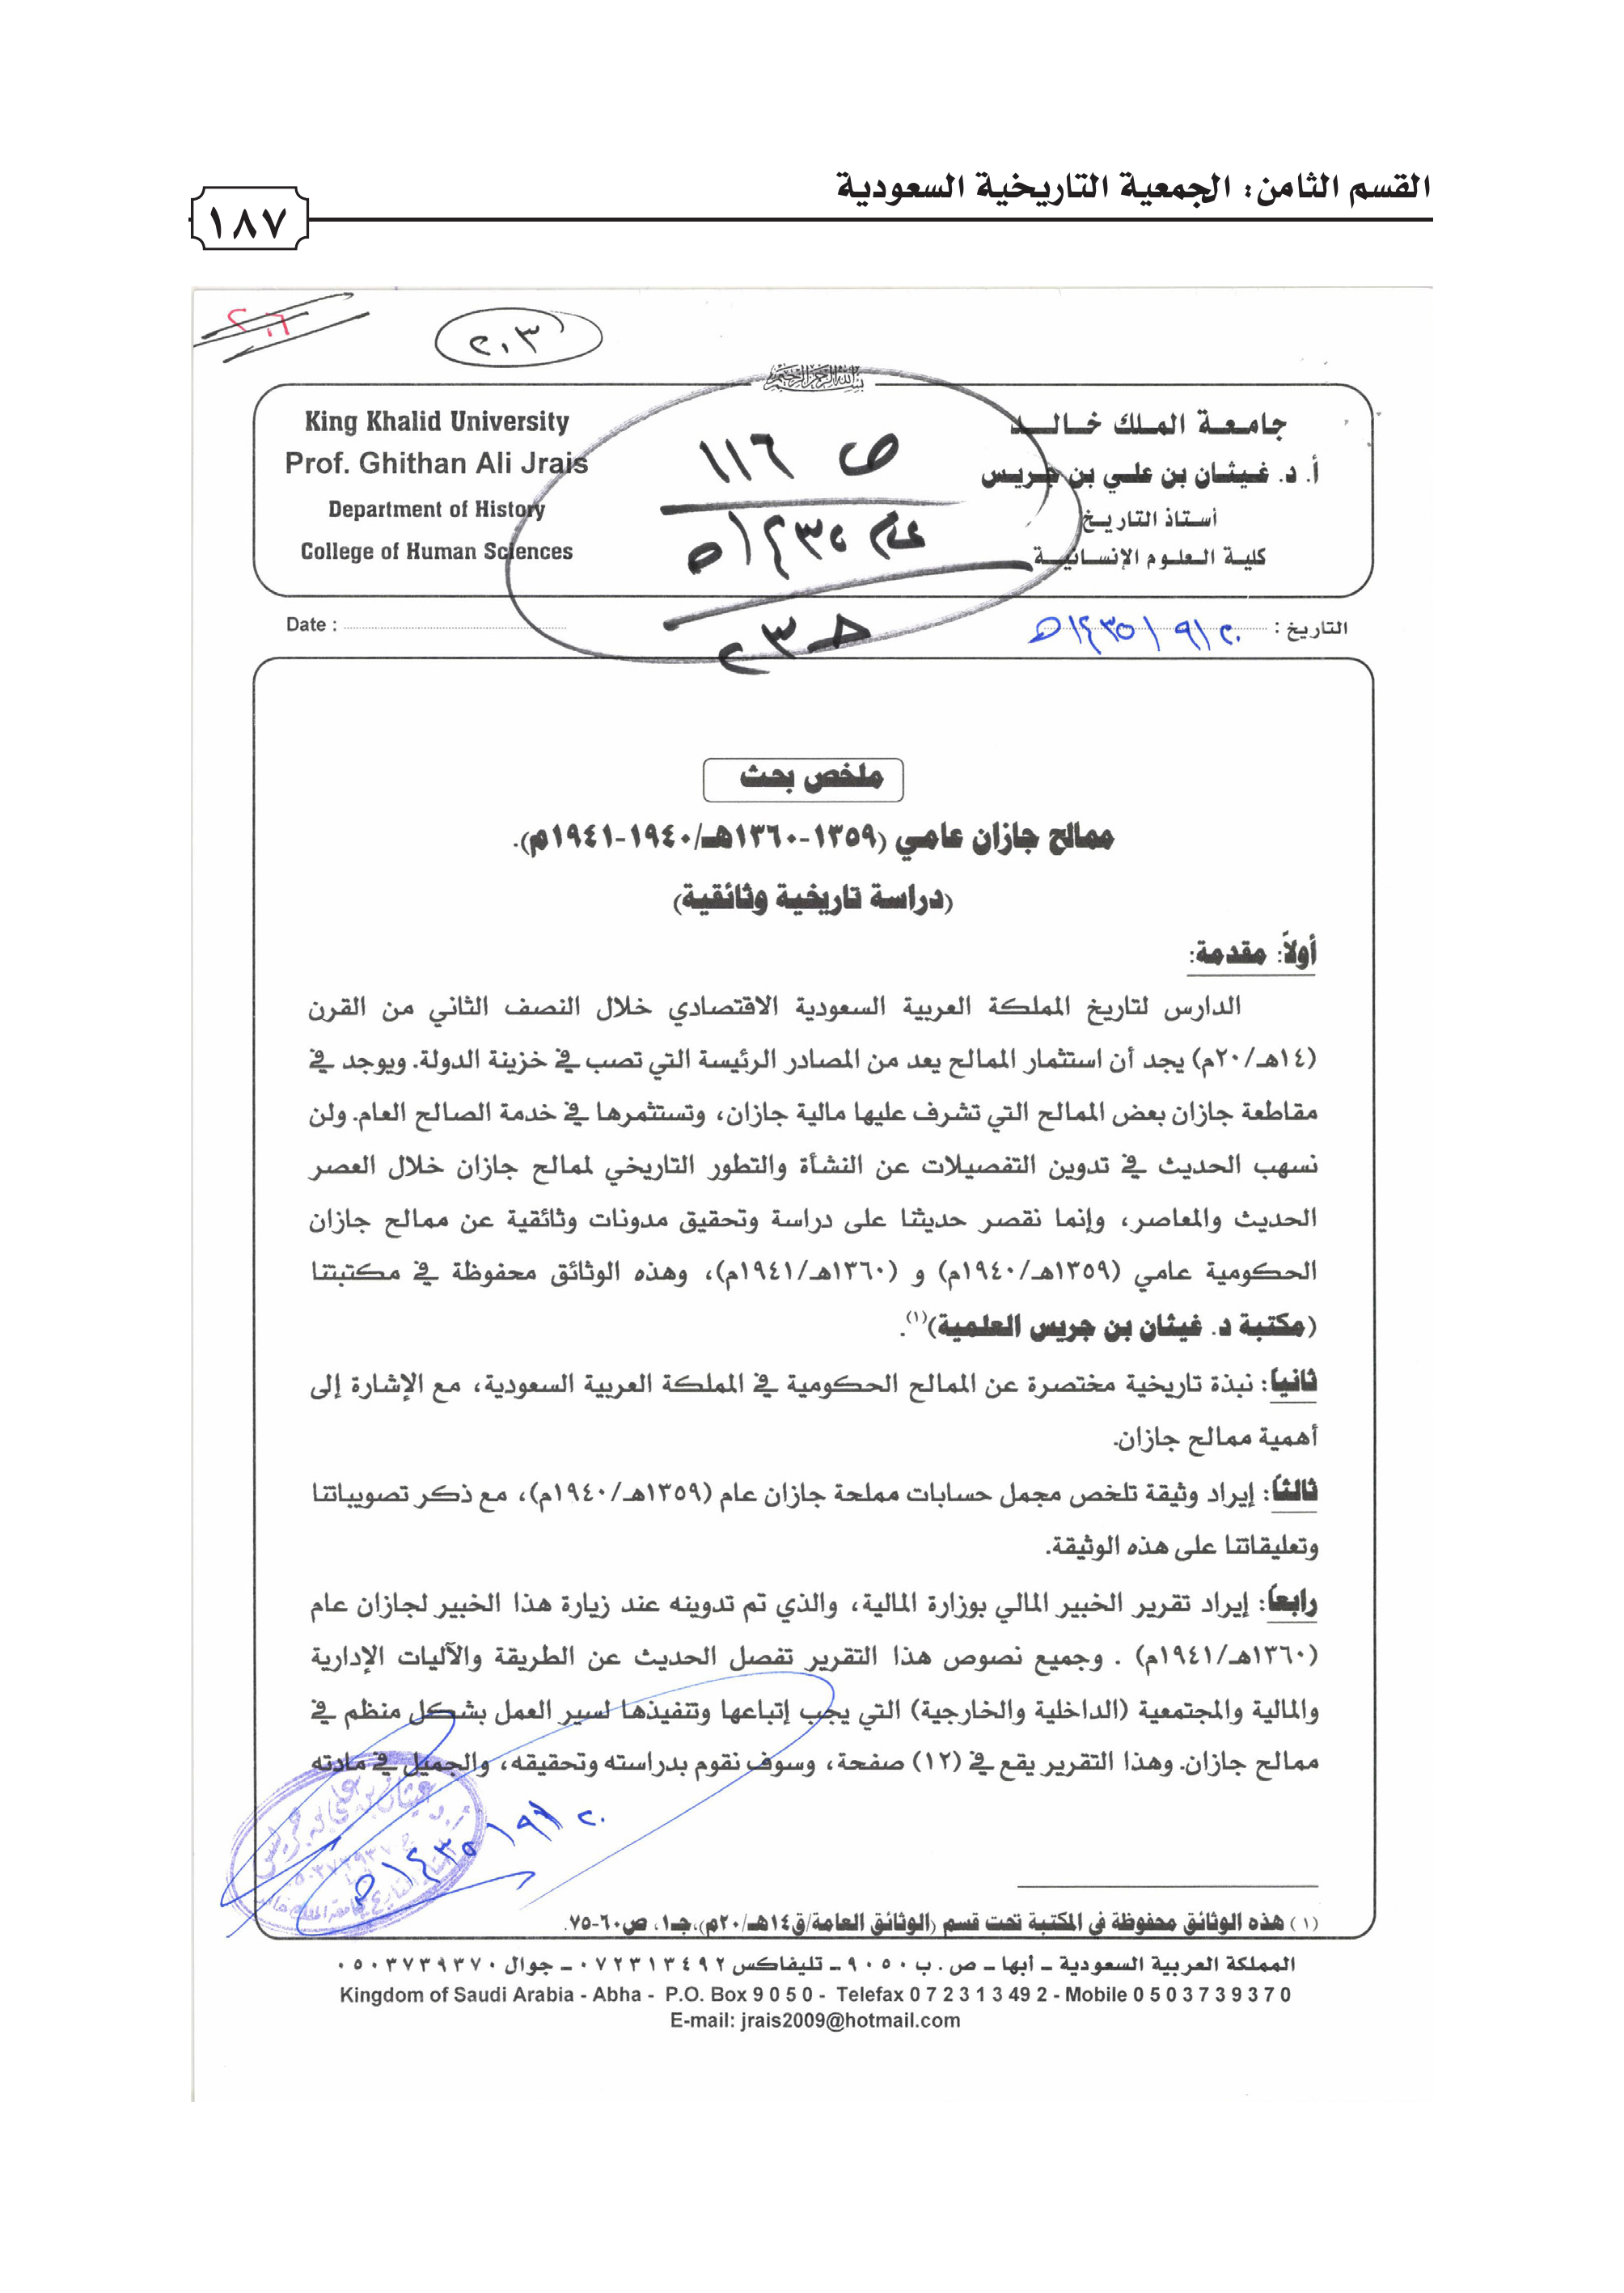 القسم الثامن: الجمعية التاريخية السعودية
١٨٧
٢٠٦
٢٠٣
بسم الله الرحمن الرحيم
King Khalid University
Prof. Ghithan Ali Jrais
Department of History
College of Human Sciences
جامعة الملك خالد
أ. د. غيثان بن علي بن جريس
أستاذ التاريخ
كلية العلوم الإنسانية
ص ١١٦
Date :
التاريخ : ٢٠/٩/١٤٣٥هـ
ملخص بحث
ممالح جازان عامي (١٣٥٩-١٣٦٠هـ/١٩٤٠-١٩٤١م).
(دراسة تاريخية وثائقية)
أولاً: مقدمة:
الدارس لتاريخ المملكة العربية السعودية الاقتصادي خلال النصف الثاني من القرن
(١٤هـ/٢٠م) يجد أن استثمار الممالح يعد من المصادر الرئيسة التي تصب في خزينة الدولة. ويوجد في
مقاطعة جازان بعض الممالح التي تشرف عليها مالية جازان، وتستثمرها في خدمة الصالح العام. ولن
نسهب الحديث في تدوين التفصيلات عن النشأة والتطور التاريخي لممالح جازان خلال العصر
الحديث والمعاصر، وإنما نقصر حديثنا على دراسة وتحقيق مدونات وثائقية عن ممالح جازان
الحكومية عامي (١٣٥٩هـ/١٩٤٠م) و (١٣٦٠هـ/١٩٤١م)، وهذه الوثائق محفوظة في مكتبتنا
(مكتبة د. غيثان بن جريس العلمية)(١).
ثانياً: نبذة تاريخية مختصرة عن الممالح الحكومية في المملكة العربية السعودية، مع الإشارة إلى
أهمية ممالح جازان.
ثالثاً: إيراد وثيقة تلخص مجمل حسابات مملحة جازان عام (١٣٥٩هـ/١٩٤٠م)، مع ذكر تصويباتنا
وتعليقاتنا على هذه الوثيقة.
رابعاً: إيراد تقرير الخبير المالي بوزارة المالية، والذي تم تدوينه عند زيارة هذا الخبير لجازان عام
(١٣٦٠هـ/١٩٤١م) . وجميع نصوص هذا التقرير تفصل الحديث عن الطريقة والآليات الإدارية
والمالية والمجتمعية (الداخلية والخارجية) التي يجب إتباعها وتنفيذها لسير العمل بشكل منظم في
ممالح جازان. وهذا التقرير يقع في (١٢) صفحة، وسوف نقوم بدراسته وتحقيقه، والجميل في مادته
أ. د غيثان بن علي بن جريس
٢٠/٩/١٤٣٥هـ
(١) هذه الوثائق محفوظة في المكتبة تحت قسم (الوثائق العامة/ق١٤هـ/٢٠م)، جـ١، ص٦٠-٧٥.
المملكة العربية السعودية - أبها - ص . ب ٩٠٥٠ - تليفاكس ٠٧٢٣١٣٤٩٢ - جوال ٠٥٠٣٧٣٩٣٧٠
Kingdom of Saudi Arabia - Abha - P.O. Box 9 0 5 0 - Telefax 0 7 2 3 1 3 49 2 - Mobile 0 5 0 3 7 3 9 3 7 0
E-mail: jrais2009@hotmail.com